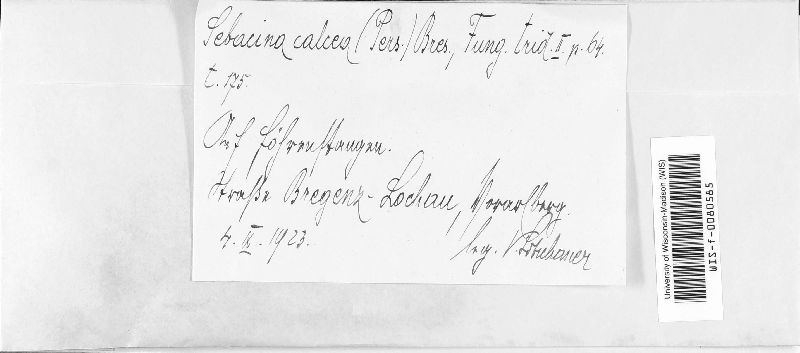 Sebacina calcea (Pers.) Bres., Fung. trid. II p. 64.
t. 175.
Auf Föhrenstangen.
Straße Bregenz-Lochau, Vorarlberg.
4. IX. 1923.
leg. V.
University of Wisconsin-Madison (WIS)
WIS-f-0080585